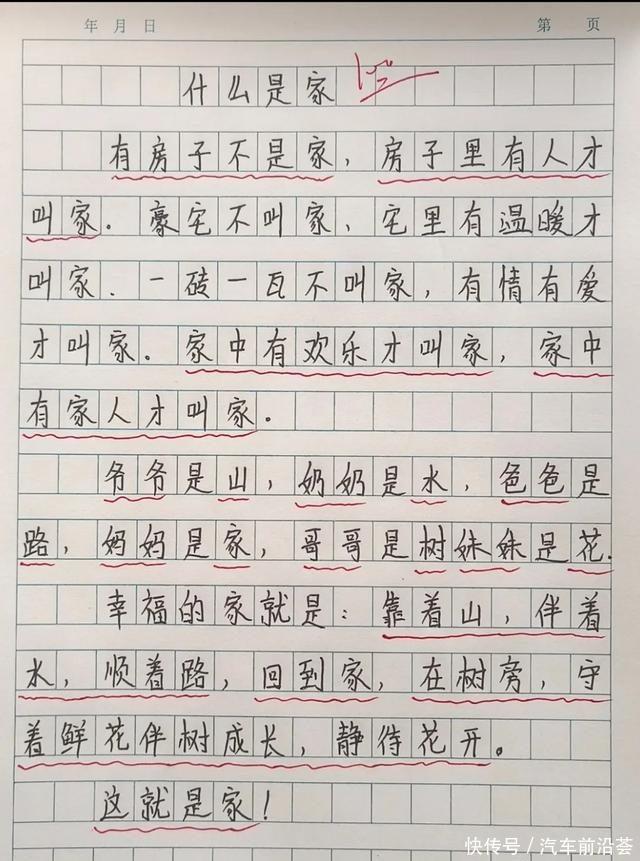 年 月 日 第 页
什么是家 100
有房子不是家，房子里有人才
叫家．豪宅不叫家、宅里有温暖才
叫家．一砖一瓦不叫家，有情有爱
才叫家．家中有欢乐才叫家，家中
有家人才叫家．
爷爷是山，奶奶是水，爸爸是
路，妈妈是家，哥哥是树妹妹是花．
幸福的家就是：靠着山，伴着
水，顺着路，回到家，在树旁，守
着鲜花伴树成长，静待花开。
这就是家！
快传号／汽车前沿荟